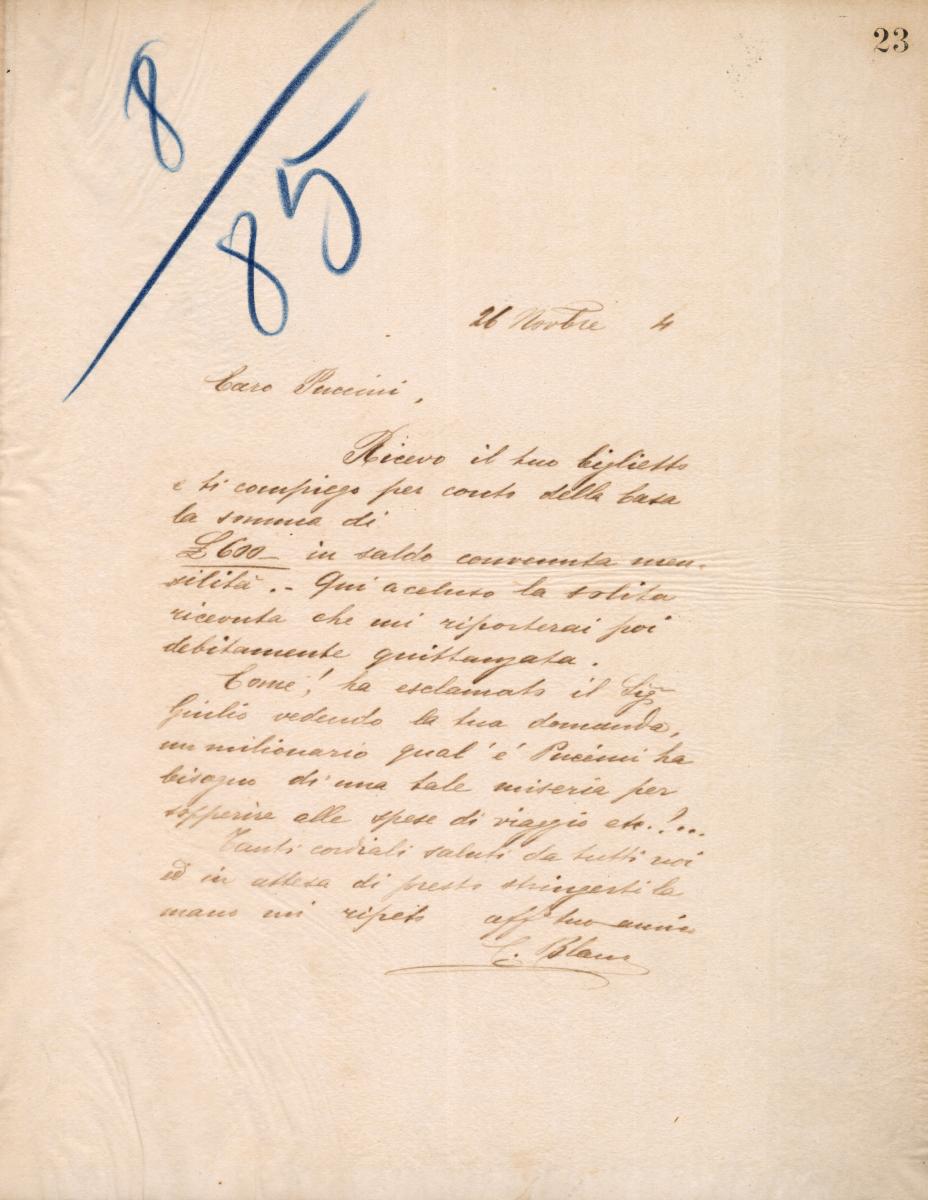 23
8
85
26 Novbre 4
Caro Puccini,
Ricevo il tuo biglietto
e ti compiego per conto della Casa
la somma di
£600 in saldo convenuta men-
silità. - Qui accluso la solita
ricevuta che mi riporterai poi
debitamente quittanzata.
Come! ha esclamato il Sig
Giulio vedendo la tua domanda,
un milionario qual'è Puccini ha
bisogno di una tale miseria per
sopperire alle spese di viaggio etc.!...
Tanti cordiali saluti da tutti noi
ed in attesa di presto stringerti la
mano mi ripeto aff tuo amico
C. Blanc